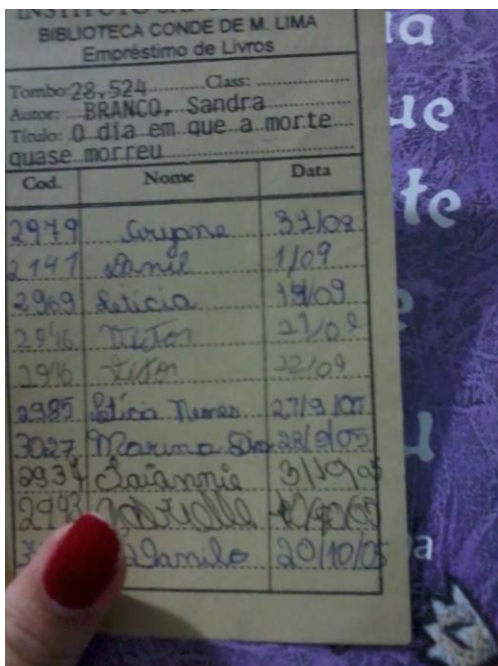 INSTITUTO
BIBLIOTECA CONDE DE M. LIMA
Empréstimo de Livros
Tombo: 28.524 Class:
Autor: BRANCO, Sandra
Título: O dia em que a morte
quase morreu
Cod. Nome Data
2979 Aryane 31/08
2141 Danil 1/09
2969 Leticia 19/09
2946 Victor 21/09
2946 Victor 22/09
2985 Letícia Nunes 27/9/05
3027 Marina Dia 28/9/05
2934 Laiannie
2943 Gabriella
Damilo 20/10/05
a
ue
te
a